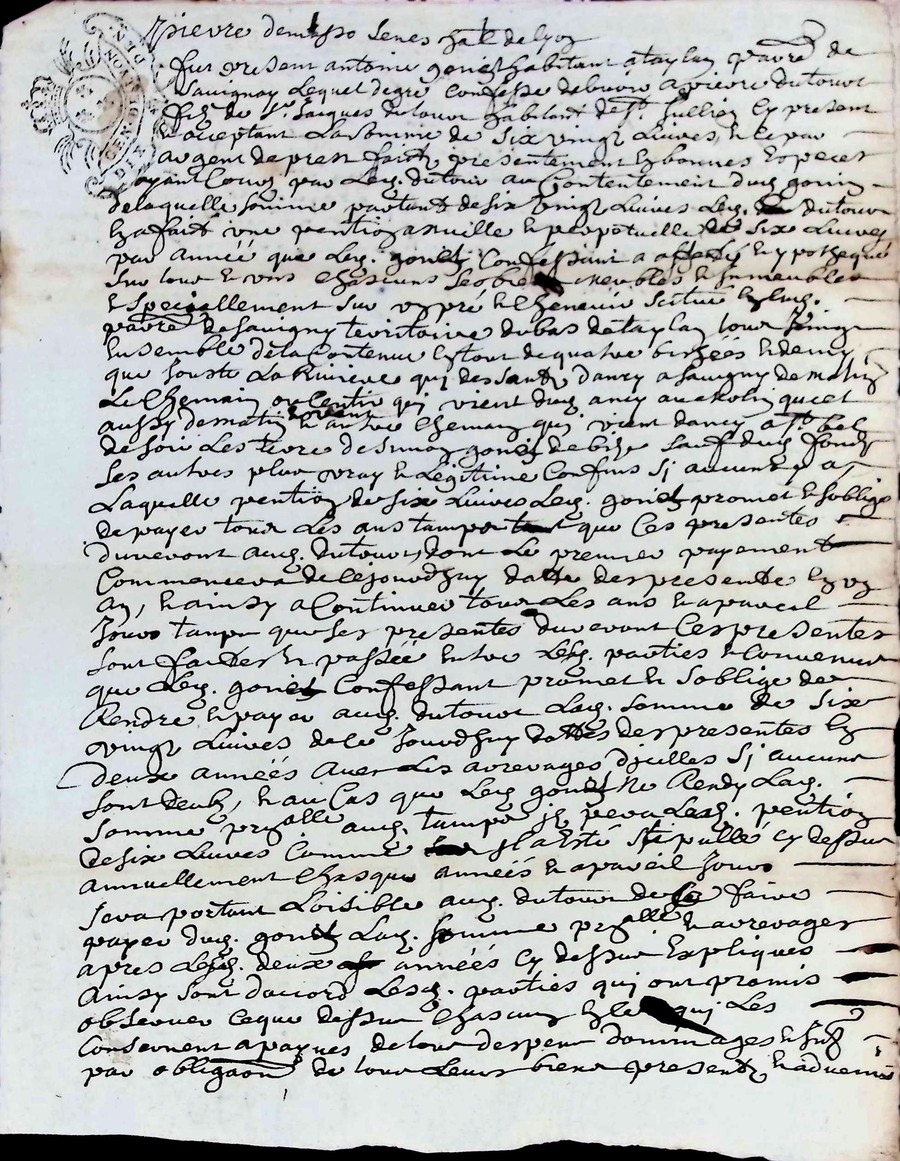 pierre demisso senes
fut present antoine gonet habitant a taylan parre de
Savignay Lequel de gre Confesse debvoir a pierre dutour
filz de Sr. Jacques dutour habitant de St. Jullien Cy present
et acceptant La Somme de Six vingt Livres, et ce par
argent de prest faict presentement en bonnes Especes
ayant Cours par Led. dutour au Contentement dud. gonin
de laquelle somme partant de six vingt Livres Led. dutour
En a fait une pention annuelle et perpetuelle de Six Livres
par année que Led. gonet Confessant a affecté et ypothequé
sur tous et uns chascuns ses biens meubles et Immeubles
et Speciallement sur un pré et chenevir scitué en lad.
parre de Savigny territoire du bas de taylan tout Joing
Ensemble de la Contenue En tout de quatre bichées et demy
que Jouste La Riviere qui dessant dancy a Savigny de matin
Le Chemain ou sentie qui vient dud. ancy au molin quiet
aussy de matin et autre Chemain qui vient dancy a St. bel
de soir Les terre de Simon gonet de bize sauf dud. fondz
ses autres plus vray et Legitime Confins Sj aucuns y a,
Laquelle pention de six Livres Led. gonet promet et soblige
de payer tous Les ans tamps que Ces presentes
dureront aud. dutour, dont Le premier payement
Commencera de cejourdhuy datte des presente En un
an, et ainsy a Continuer tous Les ans et a pareil
Jours tamps que Les presentes dureront Ces presentes
sont faictes et passée Entre Lesd. parties et Convenue
que Led. gonet Confessant promet et soblige de
Rendre et payer aud. dutour Lad. somme de six
vingt Livres de ce Jourdhuy dattes des presentes En
deux années Avec Les arrerages dicelles Sj aucuns
sont deub, et au Cas que Led. gonet Ne Rendy Lad.
somme prnalle aud. tamps il pera Lesd. pention
de six Livres Comme Il a Esté Stipullé cy dessus
annuellement Chasque années et a pareil Jours
sera portant Loisible aud. dutour de se faire
payer dud. gonet Lad. somme prnalle et arrerages
apres Lesd. deux années cy dessus Expliques
Ainsy sont daccord Lesd. parties qui ont promis
observer ce que dessus Chascun En qui Les
Concernent a paynes de tous despens dommages et Intz
par obligaon de tous Leurs biens presents et advenir